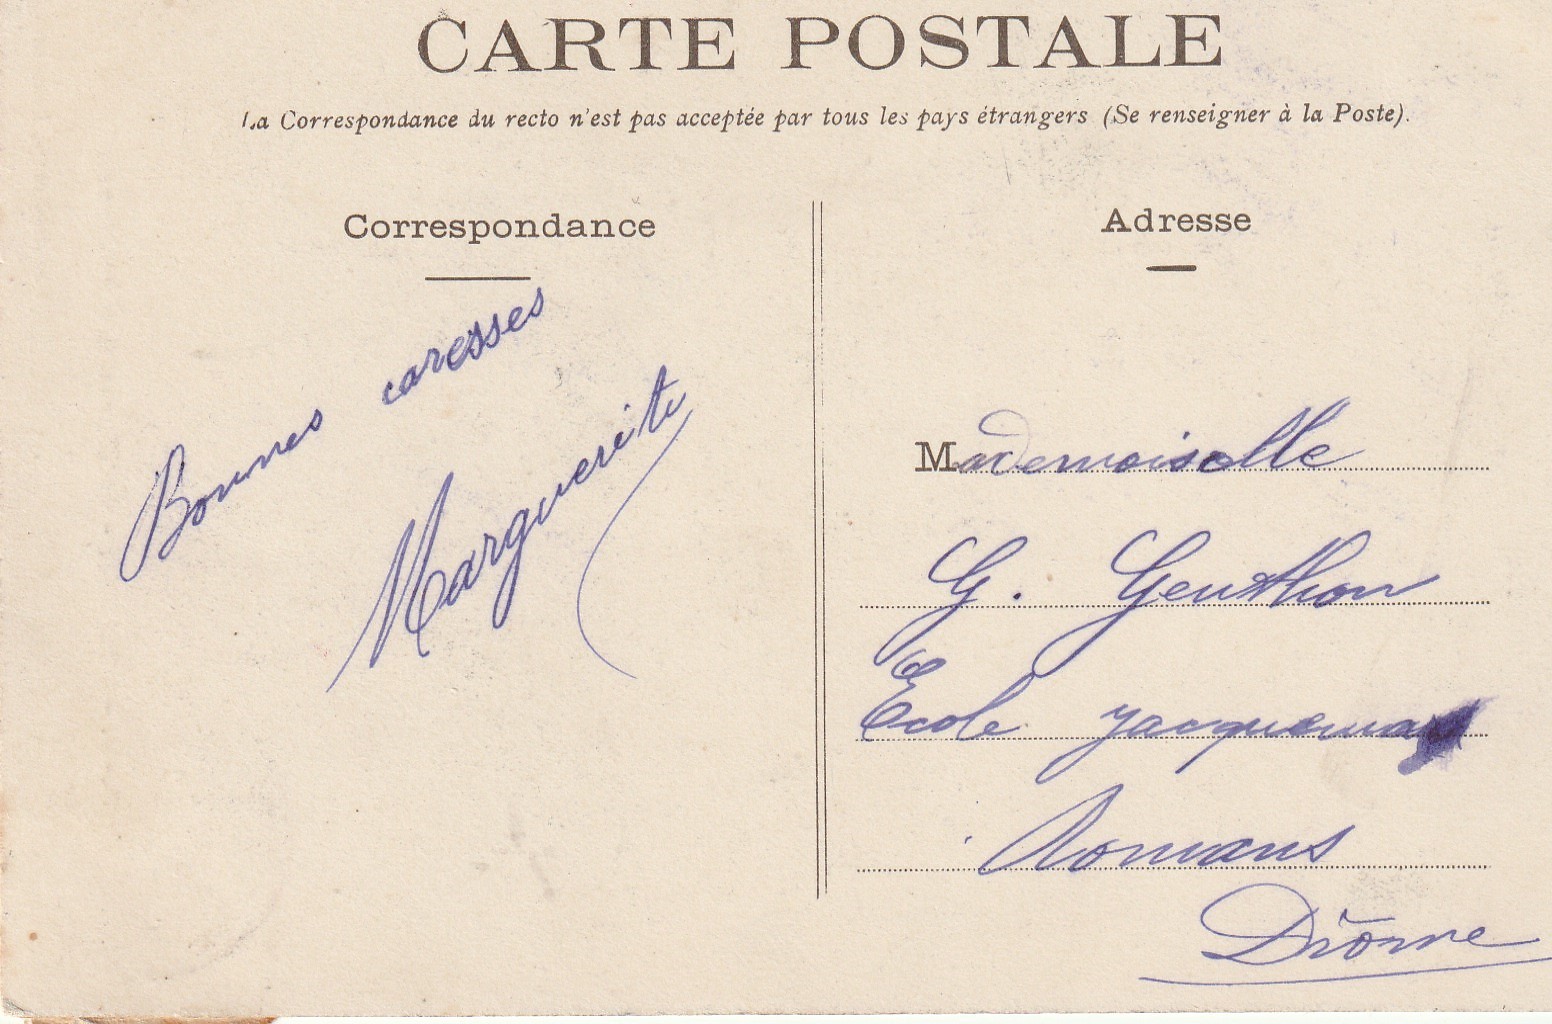 CARTE POSTALE
La Correspondance du recto n'est pas acceptée par tous les pays étrangers (Se renseigner à la Poste).
Correspondance
Bonnes caresses
Marguerite
Adresse
Mademoiselle
G. Genthon
Ecole Jacquemart
Romans
Drôme